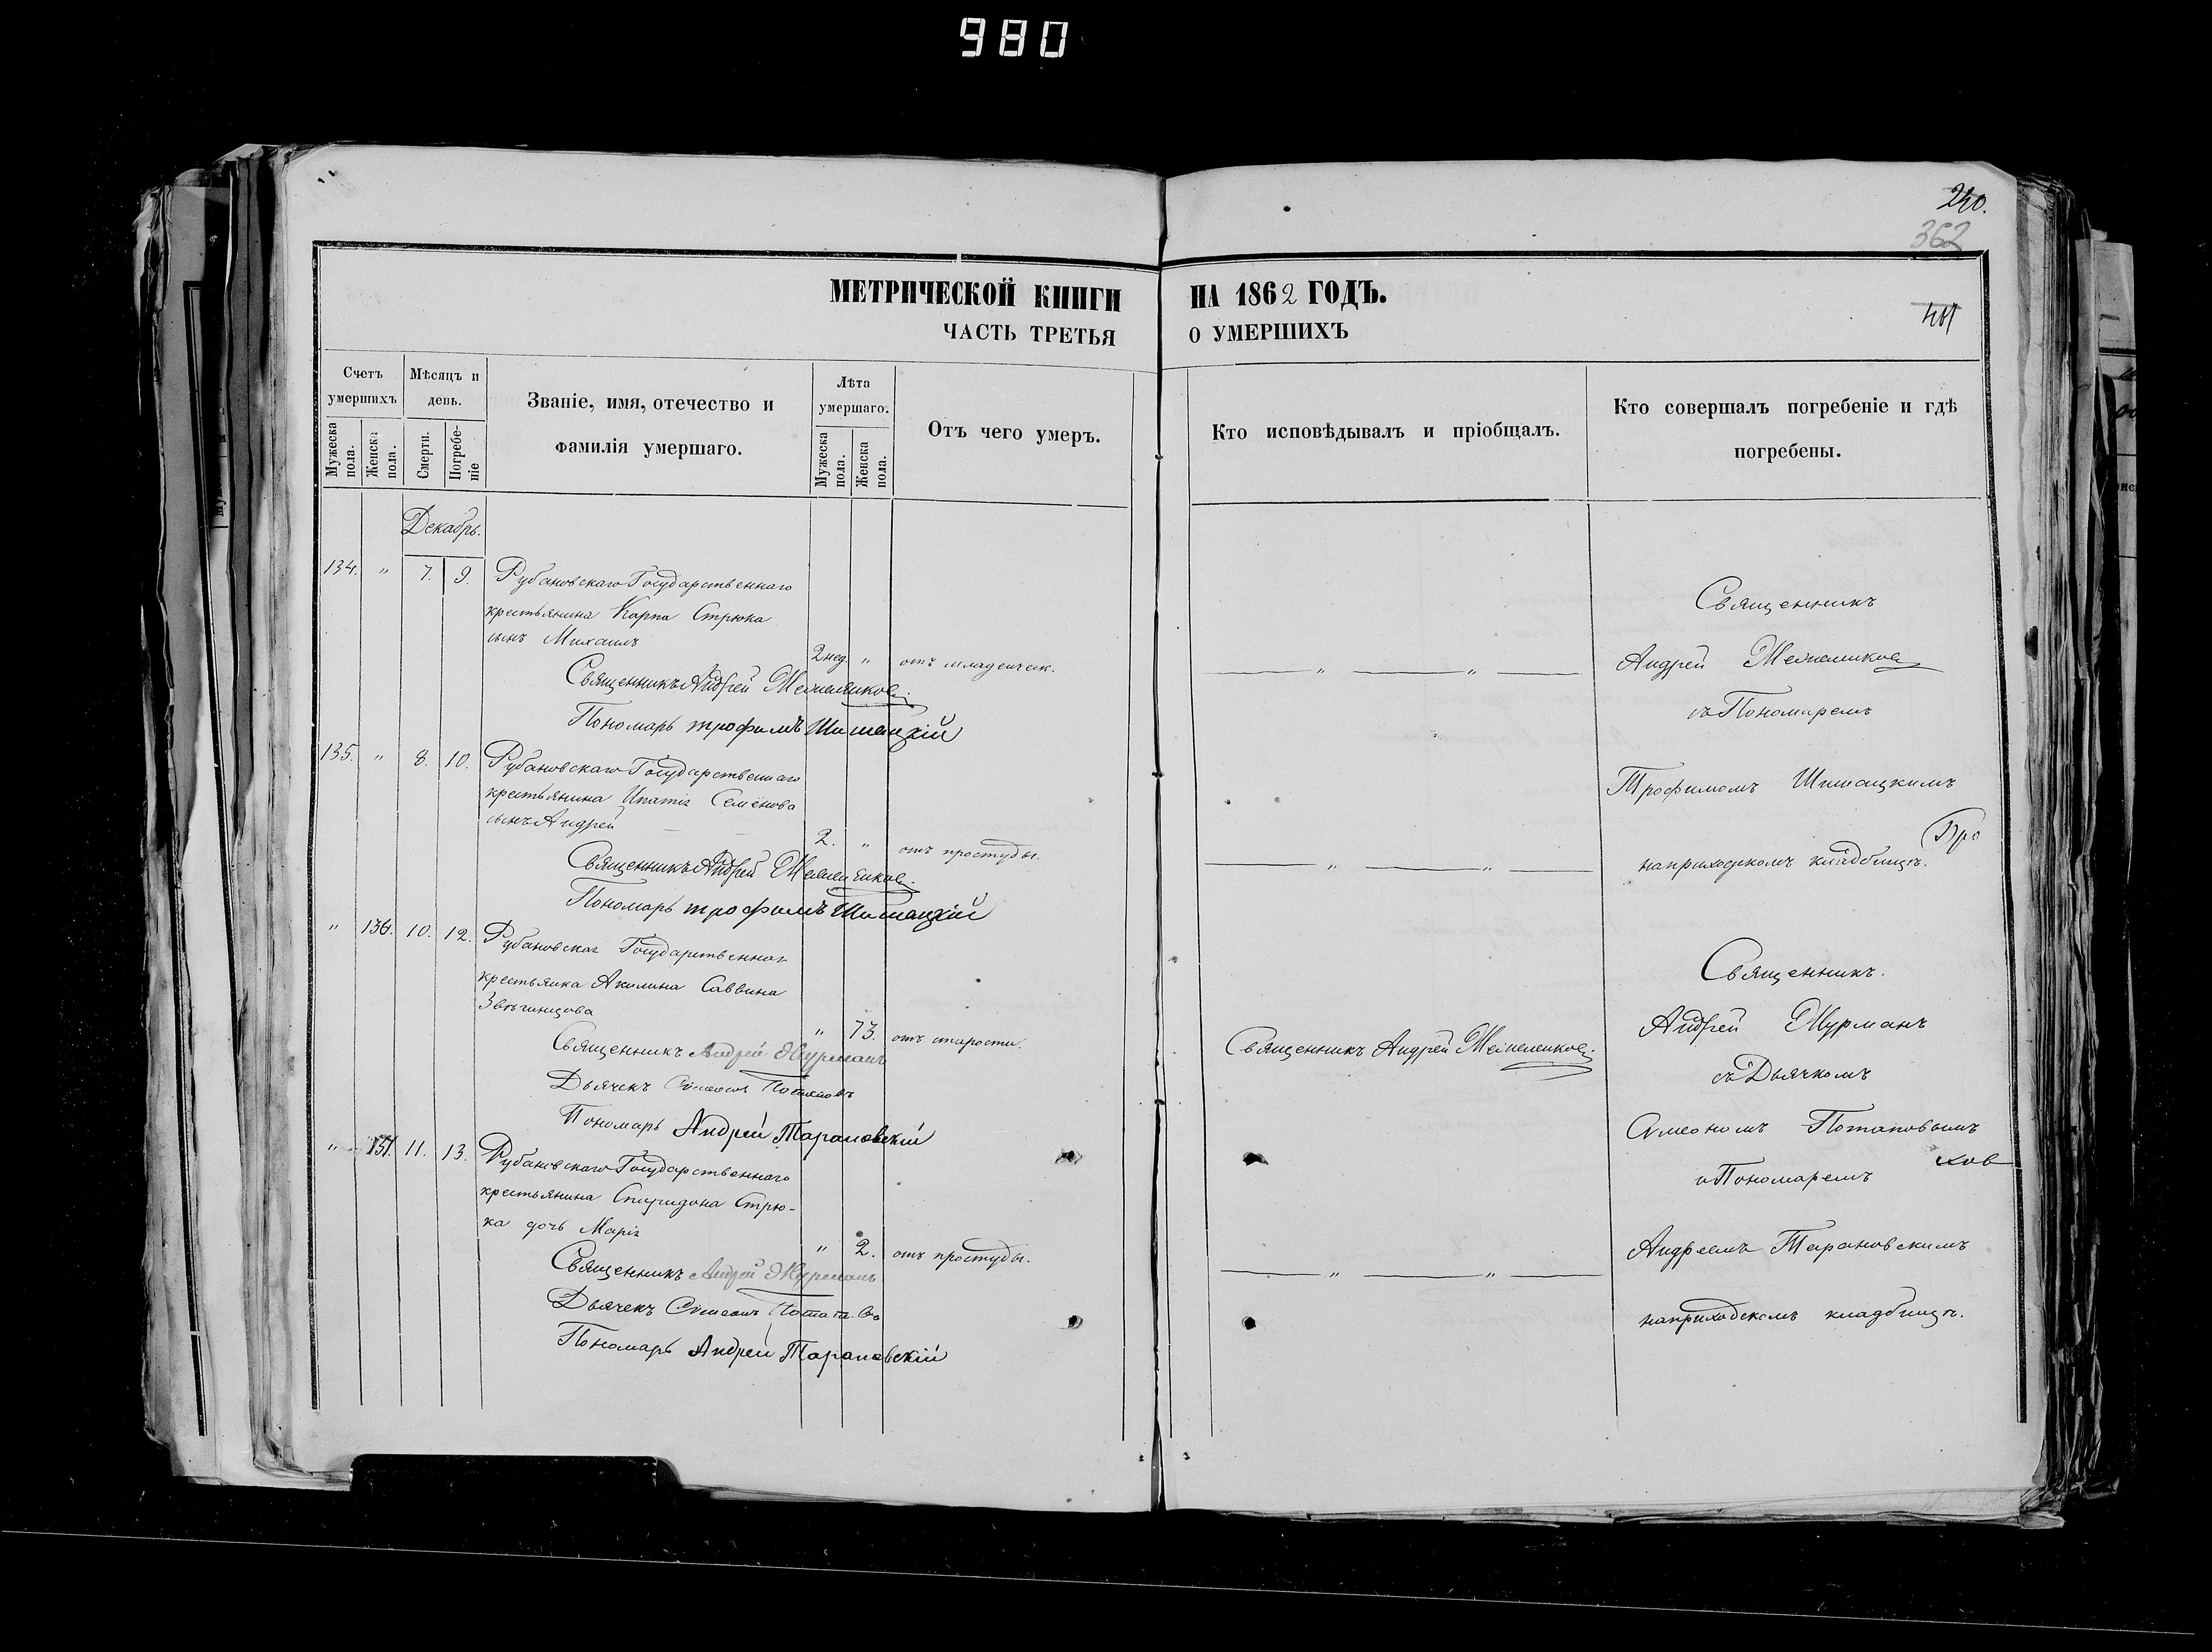 980
240.
362
МЕТРИЧЕСКОЙ КНИГИ НА 1862 ГОДЪ.
ЧАСТЬ ТРЕТЬЯ О УМЕРШИХЪ
Счетъ умершихъ
Мѣсяцъ и день.
Званіе, имя, отечество и фамилія умершаго.
Лѣта умершаго.
Отъ чего умеръ.
Кто исповѣдывалъ и пріобщалъ.
Кто совершалъ погребеніе и гдѣ погребены.
Мужеска пола.
Женска пола.
Смерти.
Погребеніе
Мужеска пола.
Женска пола.
Декабрь.
134. " 7. 9. Рубановскаго Государственнаго
крестьянина Карпа Стрюка
сынъ Михаилъ
2 нед. " отъ младенческ.
Священникъ Андрей
Пономарь Трофимъ Шишацкій
135. " 8. 10. Рубановскаго Государственнаго
крестьянина Ипатія Семёнова
сынъ Андрей
2. " отъ простуды.
Священникъ Андрей
Пономарь Трофимъ Шишацкій
" 136. 10. 12. Рубановская Государственная
крестьянка Акилина Саввина
Звѣгинцова
" 73. отъ старости.
Священникъ Андрей Журманъ
Дьячекъ Симеонъ Потаповъ
Пономарь Андрей Тарановскій
" 137. 11. 13. Рубановскаго Государственнаго
крестьянина Спиридона Стрю-
ка дочь Марія
" 2. отъ простуды.
Священникъ Андрей Журманъ
Дьячекъ Симеонъ Потаповъ
Пономарь Андрей Тарановскій
" "
" "
Священникъ Андрей
" "
Священникъ
Андрей
съ Пономаремъ
Трофимомъ Шишацкимъ
на приходскомъ кладбищѣ.
Про
Священникъ.
Андрей Журманъ
съ Дьячкомъ
Симеономъ Потаповымъ
и Пономаремъ
ков
Андреемъ Тарановскимъ
на приходскомъ кладбищѣ.